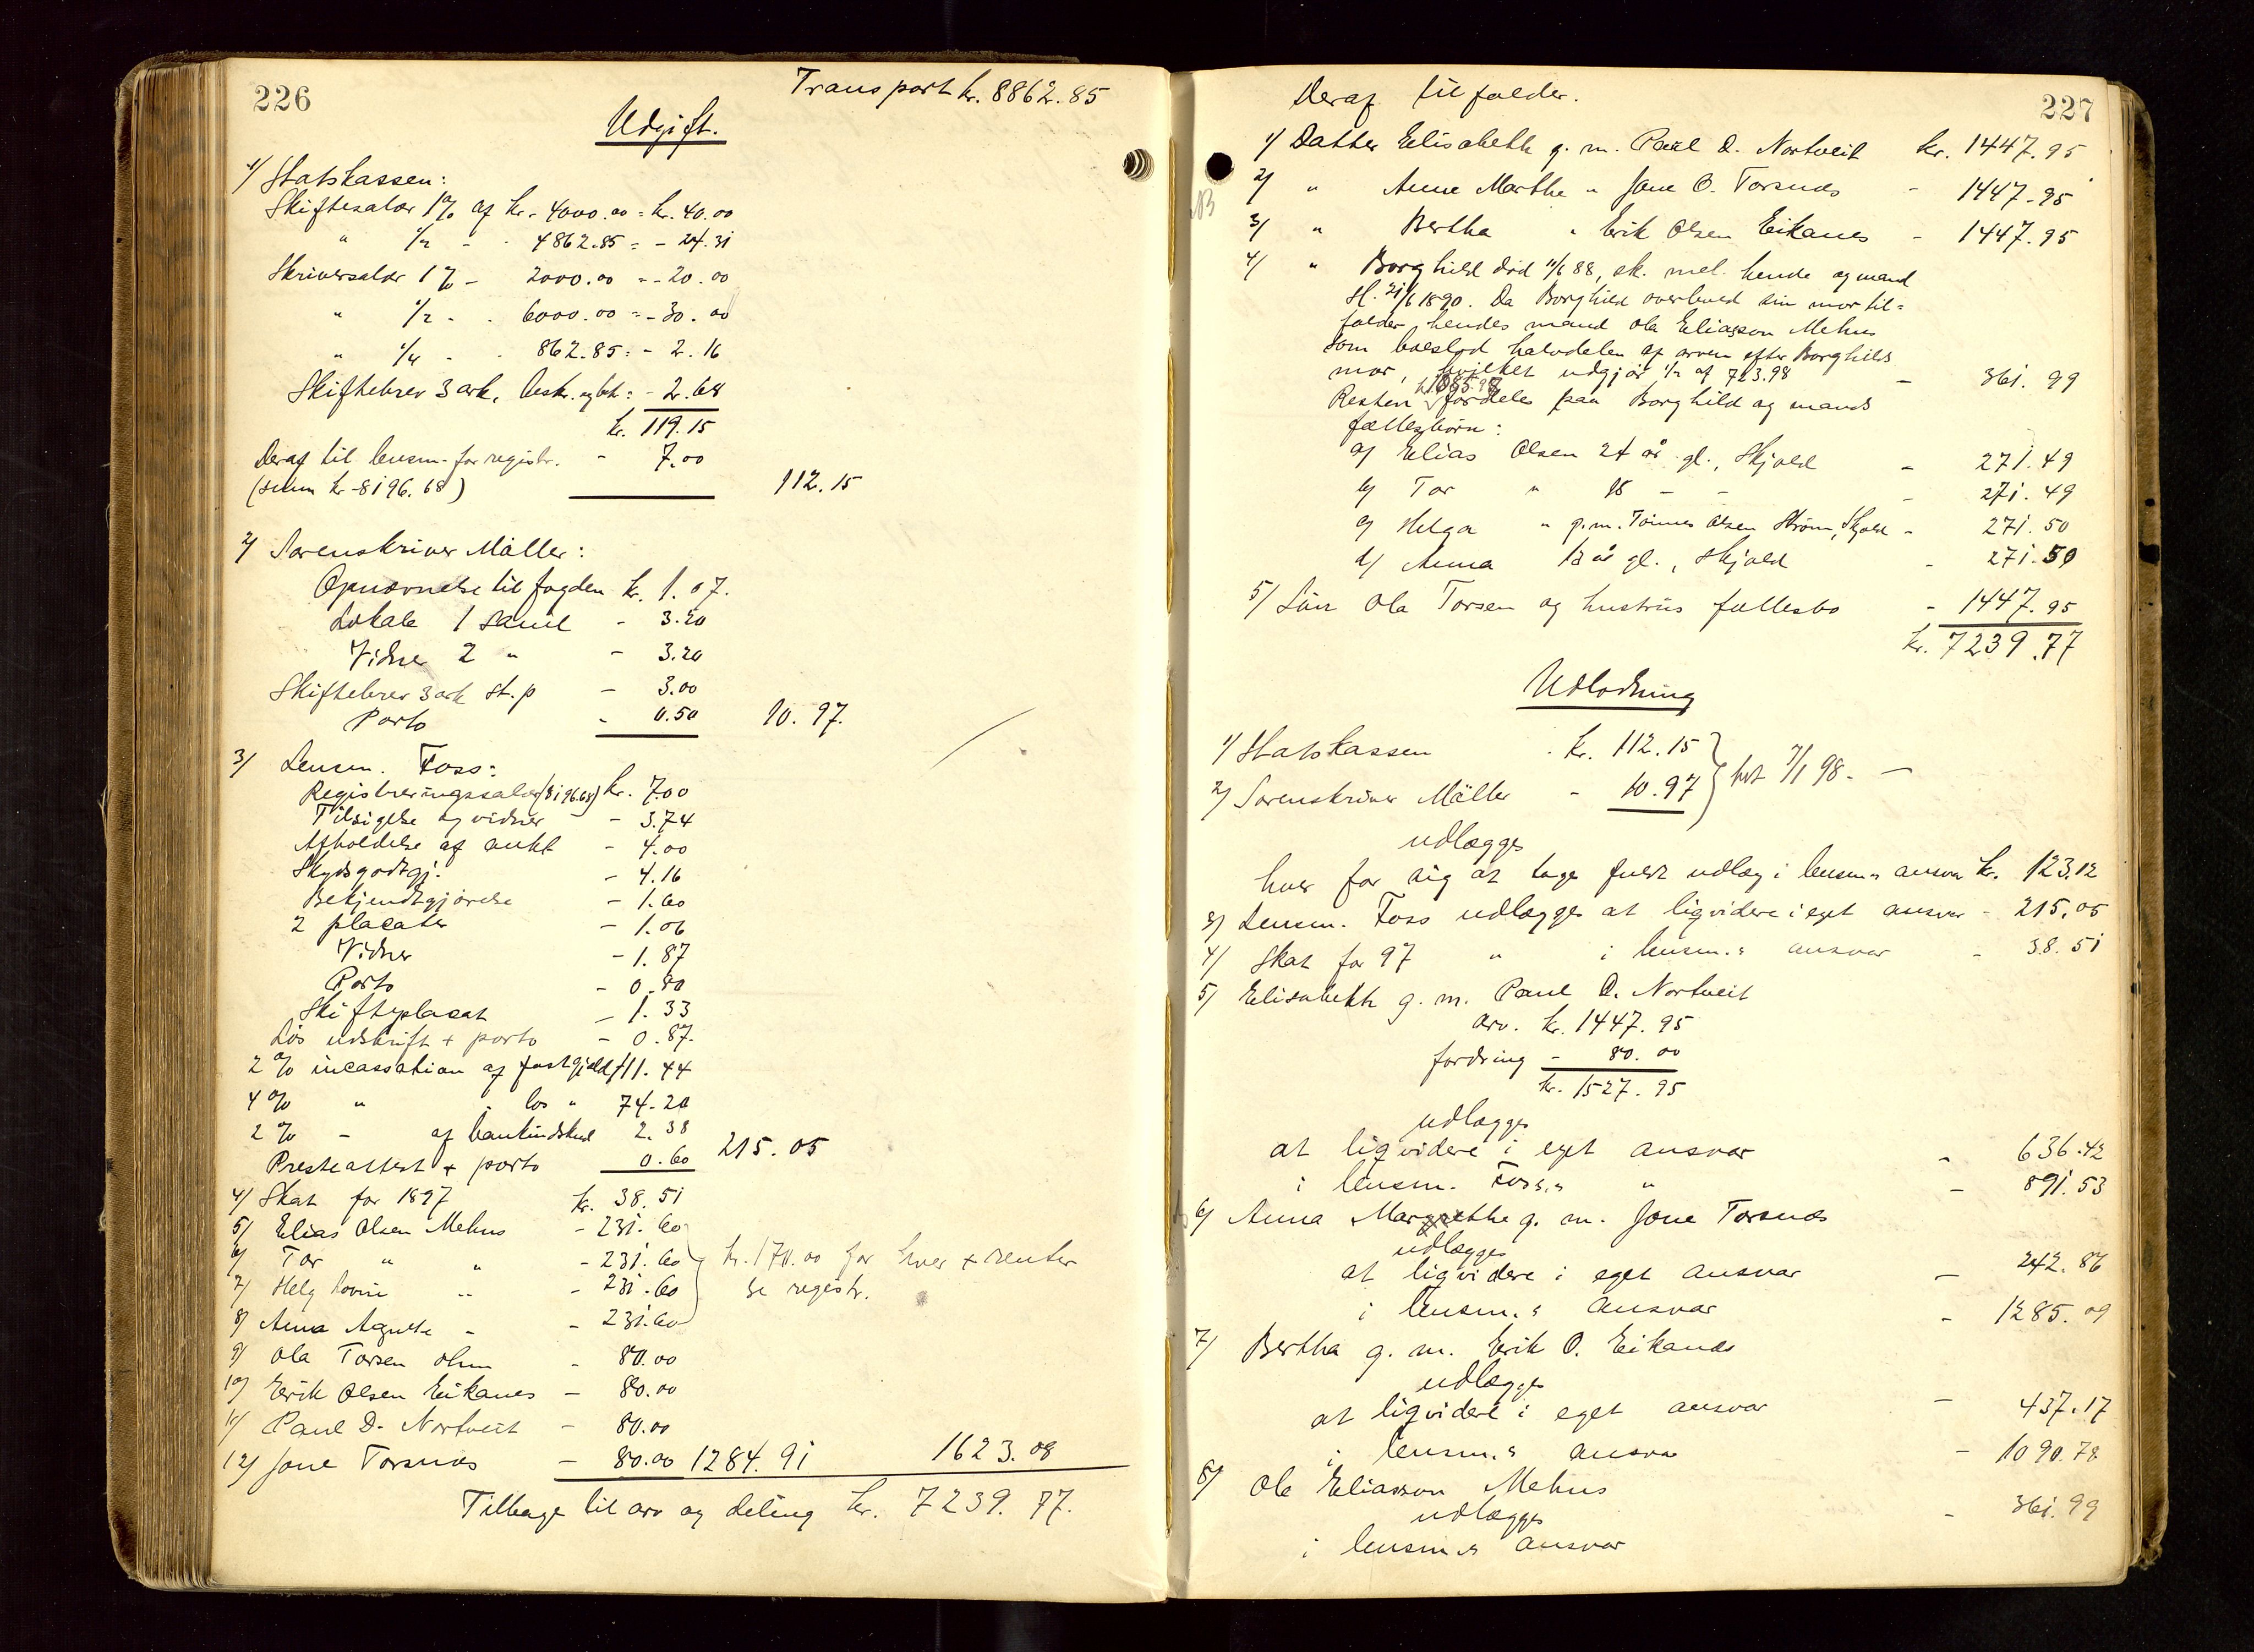 226
Transport kr. 8862.85
Udgift.
1/ Statskassen:
Skiftesalær 1% af kr. 4000.00 = kr. 40.00
" 1/2 - - 4862.85 = - 24.31
Skriversalær 1% - 2000.00 = - 20.00
" 1/2 - - 6000.00 = - 30.00
" 1/4 - - 862.85 = - 2.16
Skiftebrev 3 ark, besk. og bet: - 2.68
kr. 119.15
Deraf til lensm. for registr. - 7.00
(sum kr 8196.68) 112.15
2/ Sorenskriver Møller:
Opnævnelse til fogden kr. 1.07.
Lokale 1 saml - 3.20
Vidner 2 " - 3.20
Skiftebrev 3 ark st.p - 3.00
Porto - 0.50 10.97.
3/ Lensm. Foss:
Registreringssalær (8196.68) kr. 7.00
Tilsigelse og vidner - 3.74
Afholdelse af aukt - 4.00
Skydsgodtgj. - 4.16
Bekjendtgjørelse - 1.60
2 placater - 1.06
Vidner - 1.87
Porto - 0.80
Skifteplacat - 1.33
Løs udskrift + porto - 0.87.
2% incassation af fastgjæld 111.44
4% " - løs " 74.20
2% - af bankindskud 2.38
Presteattest + porto 0.60 215.05
4/ Skat for 1897 kr. 38.51
5/ Elias Olsen Mehus - 231.60
6/ Tor " " - 231.60 kr. 170.00 for hver + renter
7/ Helg Lovise " - 231.60 se registr.
8/ Anna Agnethe - - 231.60
9/ Ola Torsen - 80.00
10/ Erik Olsen Eikanes - 80.00
11/ Paul D. Nortveit - 80.00
12/ Jone Torsnæs - 80.00 1284.91 1623.08
Tilbage til arv og deling kr. 7239.77.
227
Deraf tilfalder.
1/ Datter Elisabeth g. m. Paul D. Nortveit kr. 1447.95
2/ " Anne Marthe " Jone O. Torsnæs - 1447.95
3/ " Bertha " Erik Olsen Eikanes - 1447.95
4/ " Borghild død 11/6 88, sk. mel. hende og mand
sl. 21/6 1890. Da Borghild overleved sin mor til=
falder hendes mand Ola Eliasson Mehus
som boeslod halvdelen af arven efter Borghilds
mor, hvilket udgjør 1/2 af 723.98 - 361.99
Resten kr 1085.98 fordeles paa Borghild og mands
fællesbørn:
a/ Elias Olsen 24 år gl., Skjold - 271.49
b/ Tor " 18 - - - 271.49
c/ Helga " g.m. Tønnes Olsen Strøm, Skjold - 271.50
d/ Anna 13 år gl., Skjold - 271.50
5/ Søn Ola Torsen og hustrus fællesbo - 1447.95
kr. 7239.77
Udlodning
1/ Statskassen kr. 112.15
2/ Sorenskriver Møller - 10.97 bet 7/1 98. -
udlægges
hver for sig at tage fuldt udlæg i lensm.s ansvar kr. 123.12
3/ Lensm. Foss udlægges at ligvidere i eget ansvar - 215.05
4/ Skat for 97 " i lensm.s ansvar - 38.51
5/ Elisabeth g. m. Paul D. Nortveit
arv. kr. 1447.95
fordring - 80.00
kr. 1527.95
udlægges
at ligvidere i eget ansvar - 636.42
i lensm. Foss's " - 891.53
6/ Anna Margrethe g. m. Jone Torsnæs
udlægges
at ligvidere i eget ansvar - 242.86
i lensm.s ansvar - 1285.09
7/ Bertha g. m. Erik O. Eikanes
udlægges
at ligvidere i eget ansvar - 437.17
i lensm.s ansvar - 1090.78
8/ Ole Eliasson Mehus
udlægges - 361.99
i lensm.s ansvar